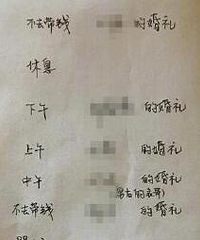 不去带钱 的婚礼
休息
下午 的婚礼
上午 的婚礼
中午 的婚礼
(男方的表哥)
不去带钱 的婚礼